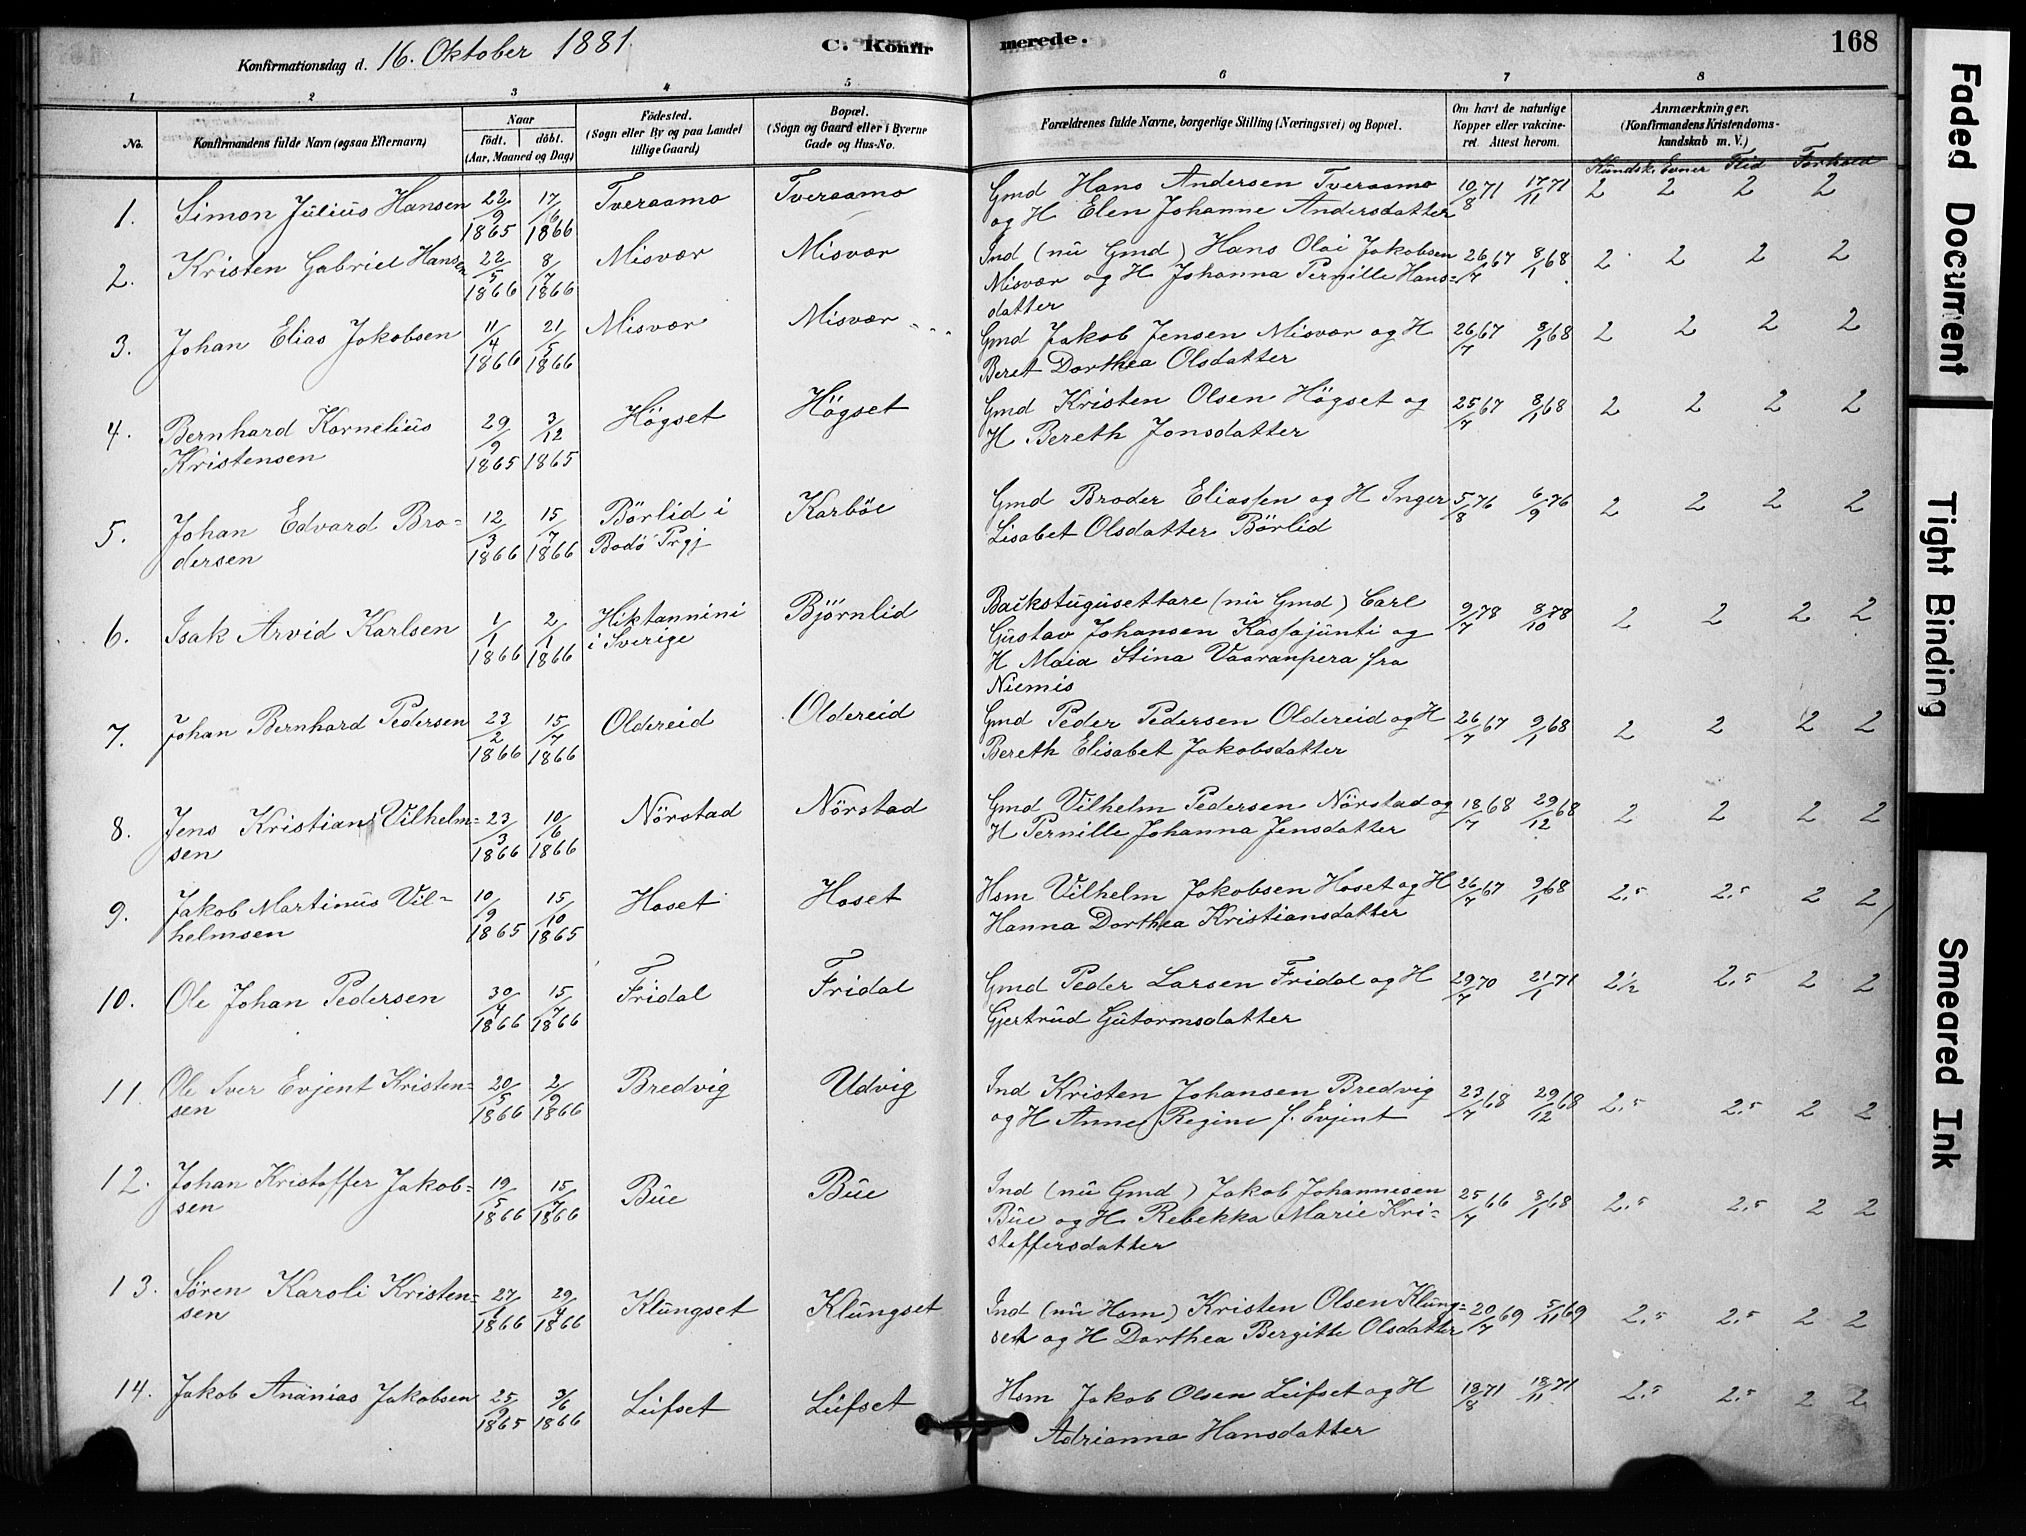 Konfirmationsdag d. 16. Oktober 1881
C. Konfir
merede.
168
1 2 3 4 5 6 7 8
No.
Konfirmandens fulde Navn (ogsaa Efternavn)
Naar
födt. döbt.
(Aar, Maaned og Dag)
Födested.
(Sogn eller By og paa Landet
tillige Gaard)
Bopæl.
(Sogn og Gaard eller i Byerne
Gade og Hus-No.
Forældrenes fulde Navne, borgerlige Stilling (Næringsvei) og Bopæl.
Om havt de naturlige
Kopper eller vakcine-
ret. Attest herom.
Anmærkninger.
(Konfirmandens Kristendoms-
kundskab m. V.)
Kundsk. Evner Flid Forhold
1. Simon Julius Hansen 22/9 1865 17/6 1866 Tveraamo Tveraamo Gmd Hans Andersen Tveraamo 10/8 71 17/11 71 2 2 2 2
og H Elen Johanne Andersdatter
2. Kristen Gabriel Hansen 22/5 1866 8/7 1866 Misvær Misvær Ind (nu Gmd) Hans Olai Jakobsen 26/7 67 8/1 68 2 2 2 2
Misvær og H Johanna Pernille Hans-
datter
3. Johan Elias Jokobsen 11/4 1866 21/5 1866 Misvær Misvær Gmd Jakob Jensen Misvær og H 26/7 67 8/1 68 2 2 2 2
Beret Dorthea Olsdatter
4. Bernhard Kornelius 29/9 1865 3/12 1865 Högset Högset Gmd Kristen Olsen Högset og 25/7 67 8/1 68 2 2 2 2
Kristensen H Bereth Jonsdatter
5. Johan Edvard Bro- 12/3 1866 15/7 1866 Börlid i Karböe Gmd Broder Eliassen og H Inger 5/8 76 6/9 76 2 2 2 2
dersen Bodö Prgj Lisabet Olsdatter Börlid
6. Isak Arvid Karlsen 1/1 1866 2/1 1866 Hiktannini Björnlid Backstugusettare (nu Gmd) Carl 9/7 78 8/10 78 2 2 2 2
i Sverige Gustav Johansen Kassajunti og
H Maia Stina Vaaranpera fra
Niemis
7. Johan Bernhard Pedersen 23/2 1866 15/7 1866 Oldereid Oldereid Gmd Peder Pedersen Oldereid og H 26/7 67 9/1 68 2 2 2 2
Bereth Elisabet Jakobsdatter
8. Jens Kristian Vilhelm- 23/3 1866 10/6 1866 Nörstad Nörstad Gmd Vilhelm Pedersen Nörstad og 18/7 68 29/12 68 2 2 2 2
sen H Pernille Johanna Jensdatter
9. Jakob Martinus Vil- 10/9 1865 15/10 1865 Hoset Hoset Hsm Vilhelm Jokobsen Hoset og H 26/7 67 9/1 68 2,5 2,5 2 2
helmsen Hanna Dorthea Kristiansdatter
10. Ole Johan Pedersen 30/4 1866 15/7 1866 Fridal Fridal Gmd Peder Larsen Fridal og H 29/7 70 21/1 71 2 1/2 2,5 2 2
Gjertrud Gutormsdatter
11. Ole Iver Evjent Kristen- 20/5 1866 2/9 1866 Bredvig Udvig Ind Kristen Johansen Bredvig 23/7 68 29/12 68 2,5 2,5 2 2
sen og H Anne Regine f. Evjent
12. Johan Kristoffer Jakob- 19/5 1866 15/7 1866 Bue Bue Ind (nu Gmd) Jakob Johannesen 25/7 66 8/1 68 2,5 2,5 2 2
sen Bue og H Rebekka Marie Kri-
stoffersdatter
13. Sören Karoli Kristen- 27/1 1866 29/4 1866 Klungset Klungset Ind (nu Hsm) Kristen Olsen Klung- 20/7 69 5/11 69 2,5 2,5 2 2
sen set og H Dorthea Bergitte Olsdatter
14. Jakob Ananias Jakobsen 25/9 1865 3/6 1866 Leifset Leifset Hsm Jakob Olsen Leifset og H 18/8 71 18/11 71 2,5 2,5 2 2
Adrianna Hansdatter
Faded Document
Tight Binding
Smeared Ink